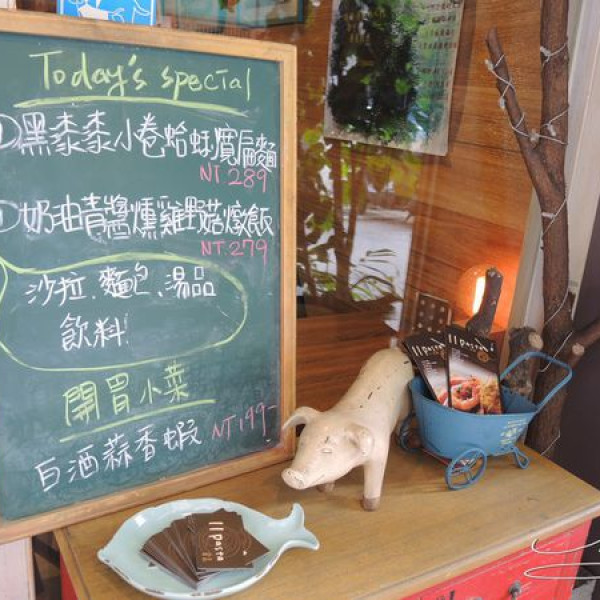 Today's special
①黑漆漆小卷蛤蚌寬扁麵
NT 289
①奶油青醬燻雞野菇燉飯
NT 279
沙拉.麵包.湯品
飲料
開胃小菜
白酒蒜香蝦 NT199-
Il Pasta
Il Pasta